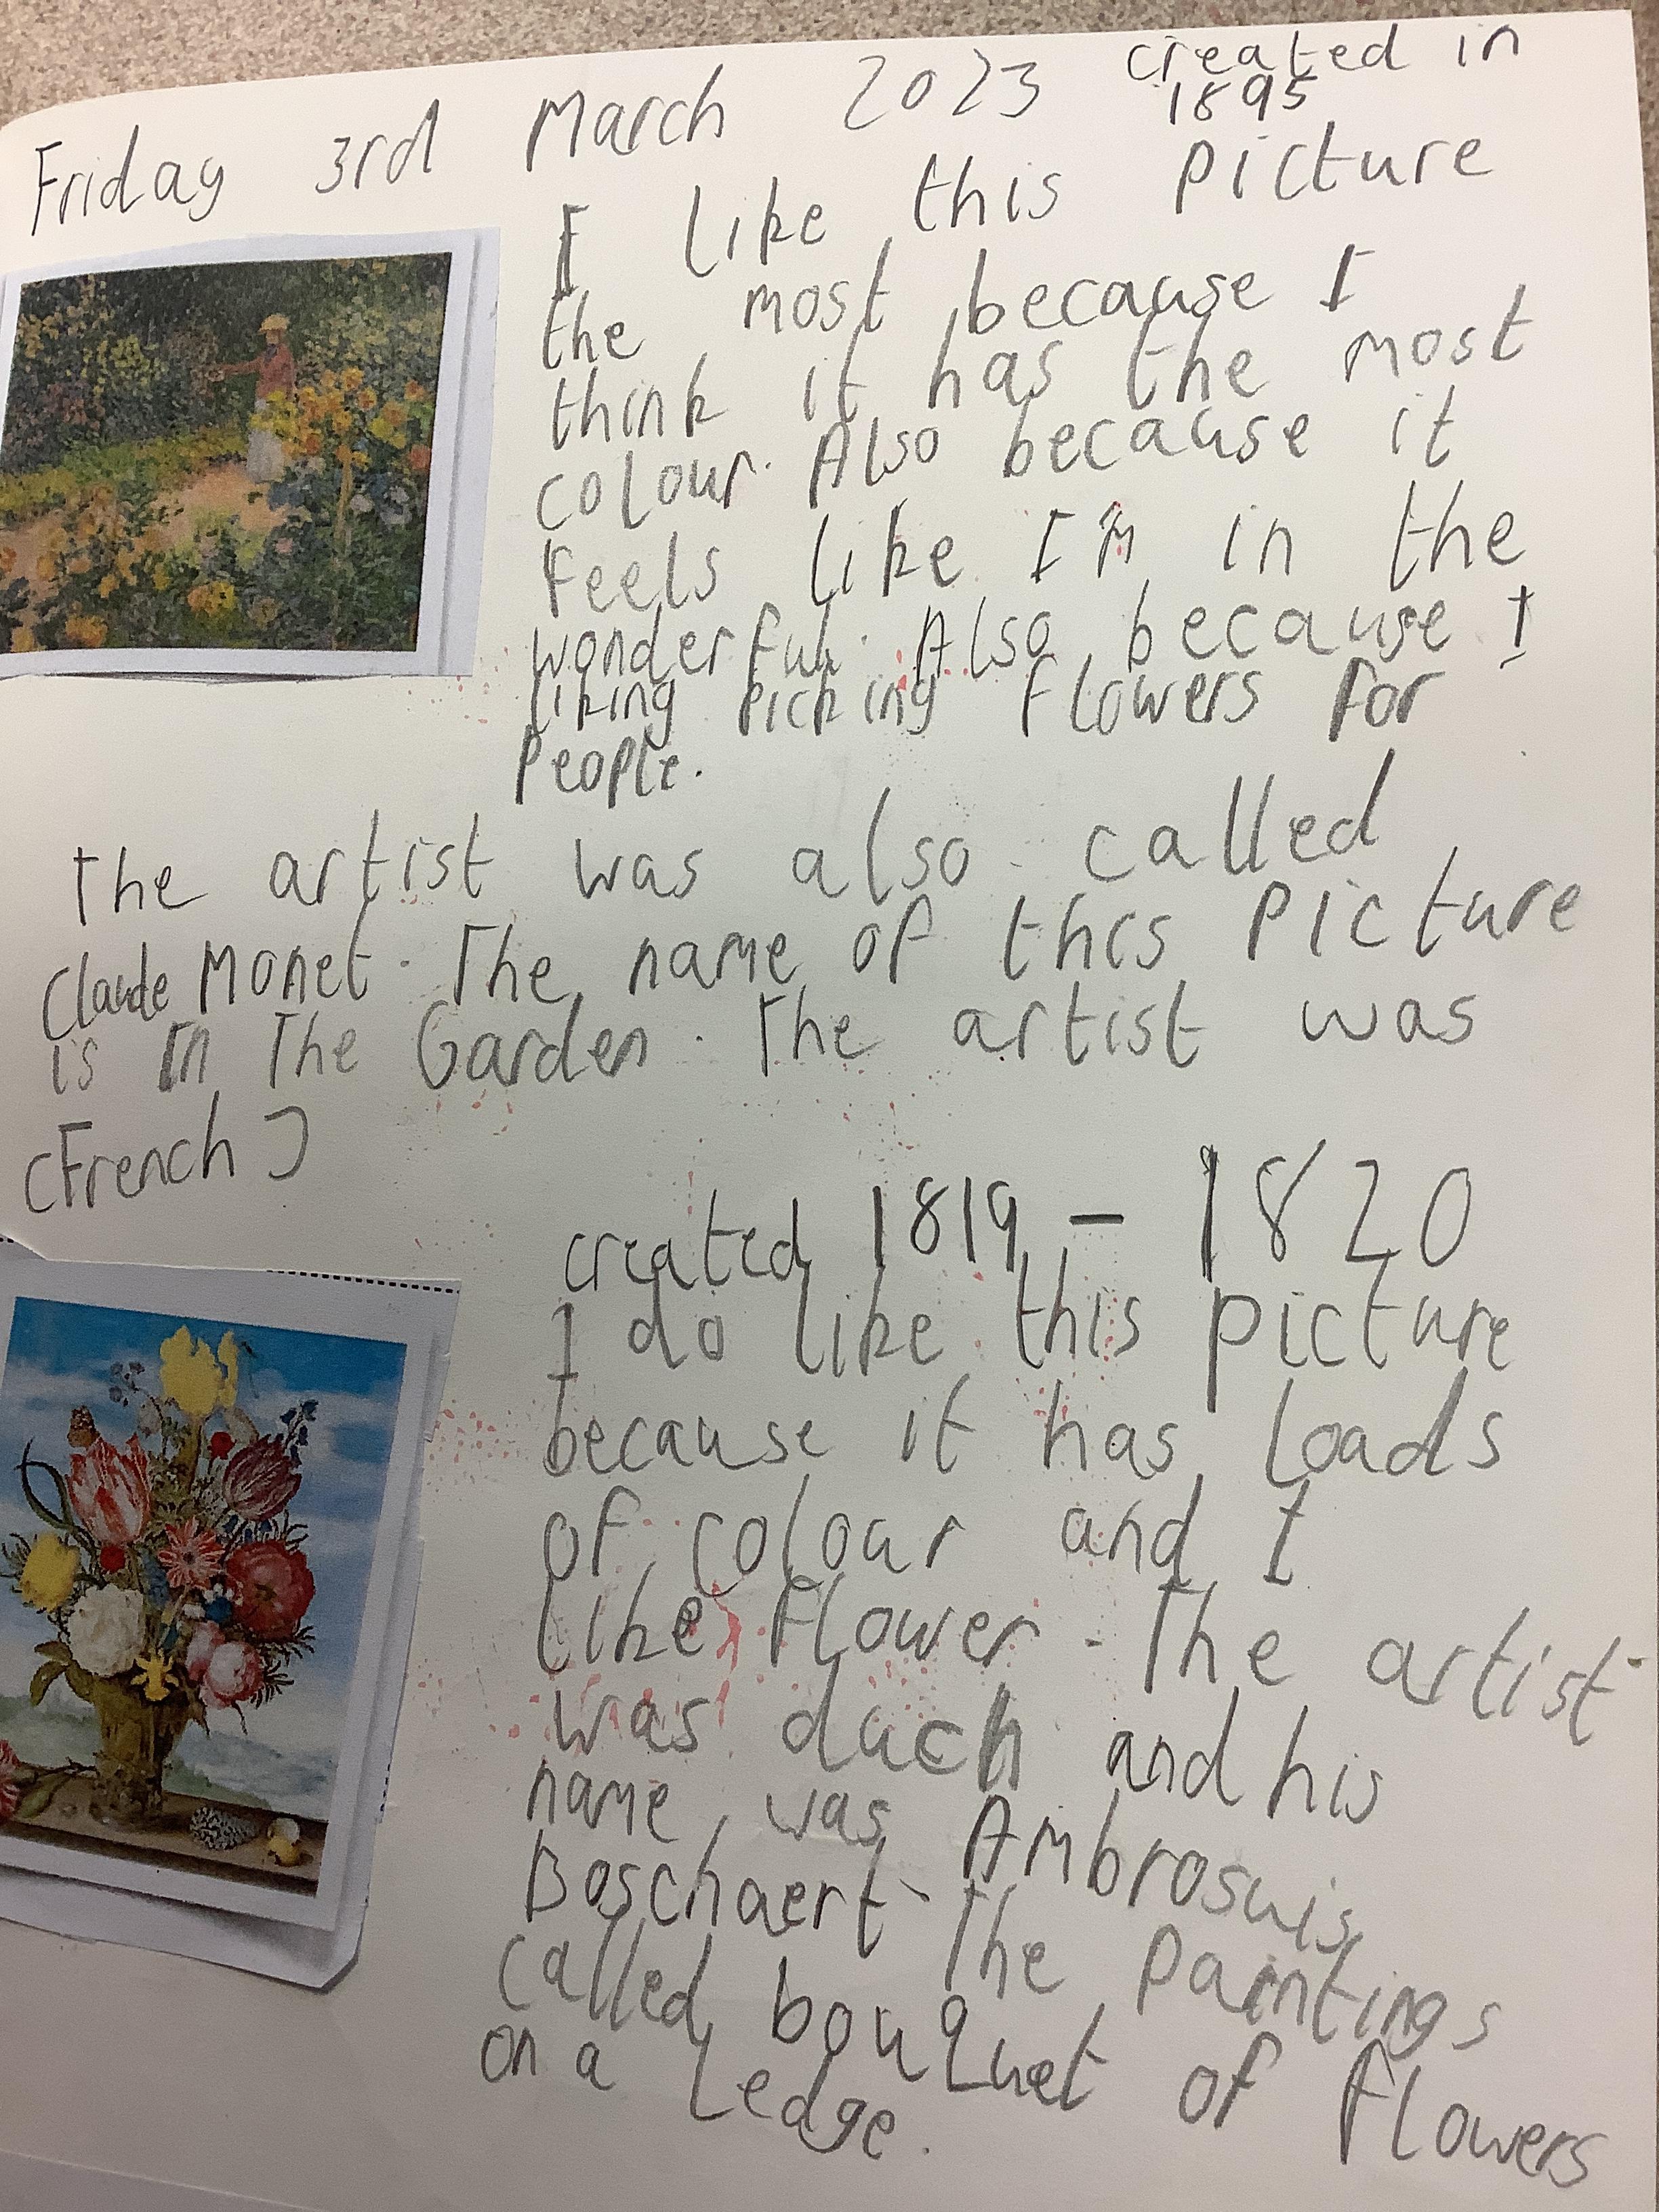 Friday 3rd March 2023 created in
1895
I like this picture
the most because I
think it has the most
colour. Also because it
feels like I'm in the
wonderful. Also because I
liking picking flowers for
People.
The artist was also called
Claude Monet. The name of this Picture
is In The Garden. The artist was
(French)
created 1819 - 1820
I do like this picture
because it has loads
of colour and I
like flower. The artist
was duch and his
name was Ambrosuis
Boschaert. The paintings
called bouquet of flowers
on a Ledge.